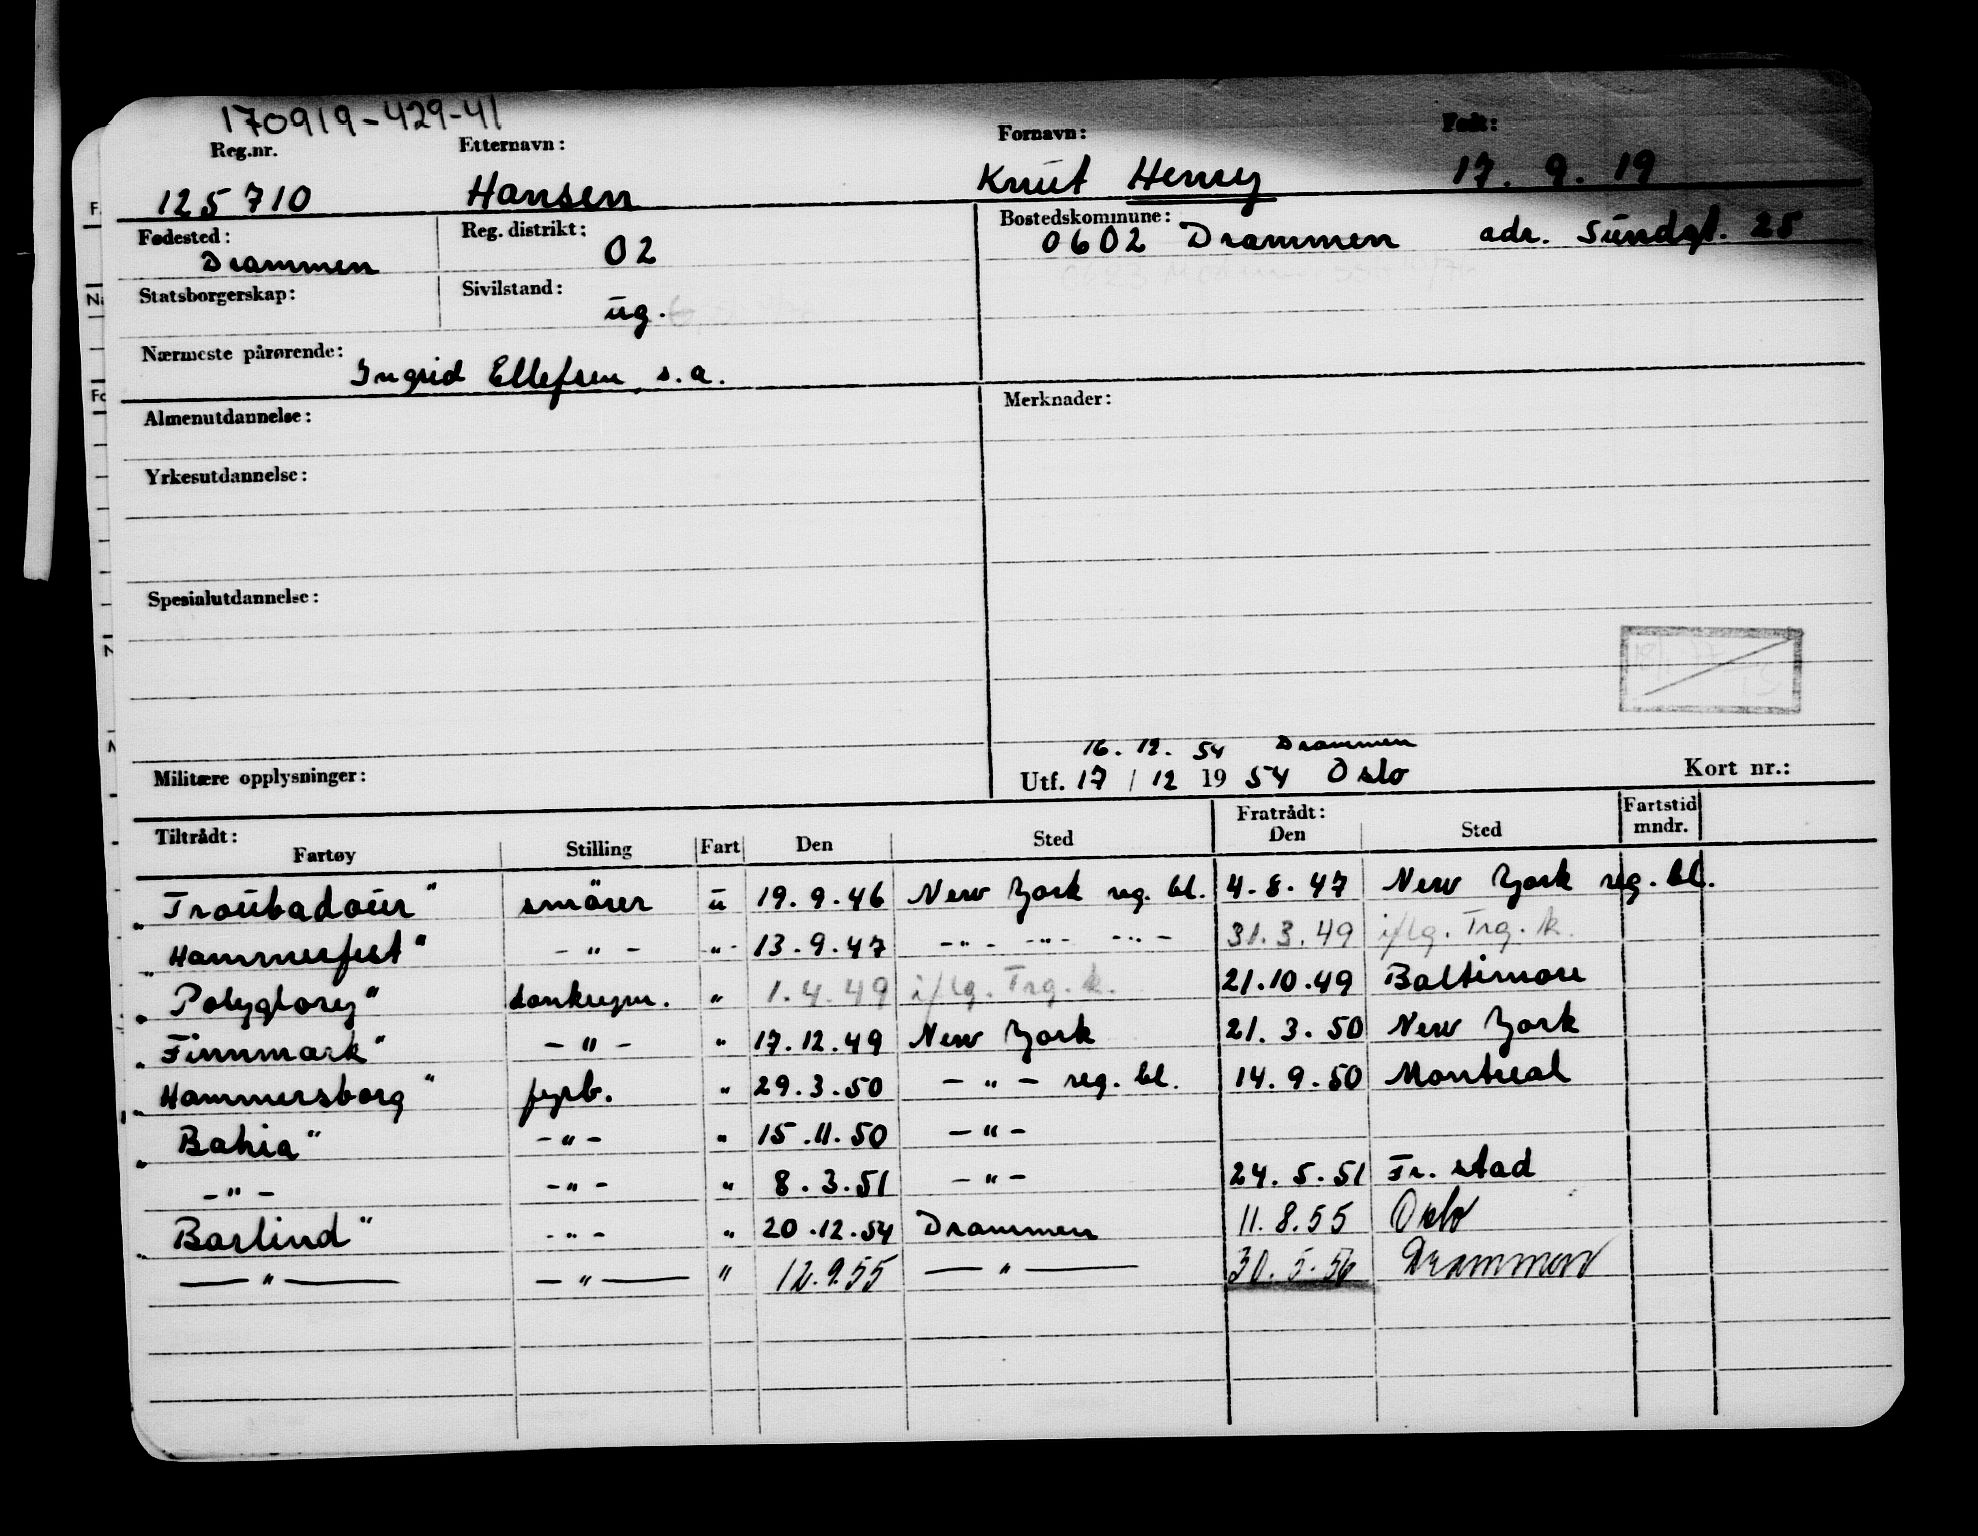 170919-429-41
Reg.nr. Etternavn: Fornavn: Født:
125710 Hansen Knut Henry 17. 9. 19
Fødested: Reg. distrikt: Bostedskommune:
Drammen 02 0602 Drammen adr. Sundgt. 25
Statsborgerskap: Sivilstand:
ug.
Nærmeste pårørende:
Ingrid Ellefsen s.a.
Almenutdannelse: Merknader:
Yrkesutdannelse:
Spesialutdannelse:
16. 12. 54 Drammen
Militære opplysninger: Utf. 17 / 12 19 54 Oslo Kort nr.:
Tiltrådt: Fratrådt: Fartstid
Fartøy Stilling Fart Den Sted Den Sted mndr.
"Troubadour" smörer u 19. 9. 46 New York reg. bl. 4. 8. 47 New York reg. bl.
"Hammerfest" - " - -"- 13. 9. 47 -"- -"- -"- 31. 3. 49 i/lg. Trg. k.
"Polyglory" donkeym. " 1. 4. 49 i/lg. Trg. k. 21.10.49 Baltimore
"Finnmark" - " - " 17.12.49 New York 21. 3. 50 New York
"Hammersborg" fyrb. " 29. 3. 50 - " - reg. bl. 14. 9. 50 Montreal
"Bahia" - " - " 15. 11. 50 - " -
- " - - " - " 8. 3. 51 - " - 24. 5. 51 Fr. stad
"Barlind" - " - " 20.12.54 Drammen 11. 8. 55 Oslo
— " — — " — " 12. 9. 55 — " — 30. 5. 56 Drammen